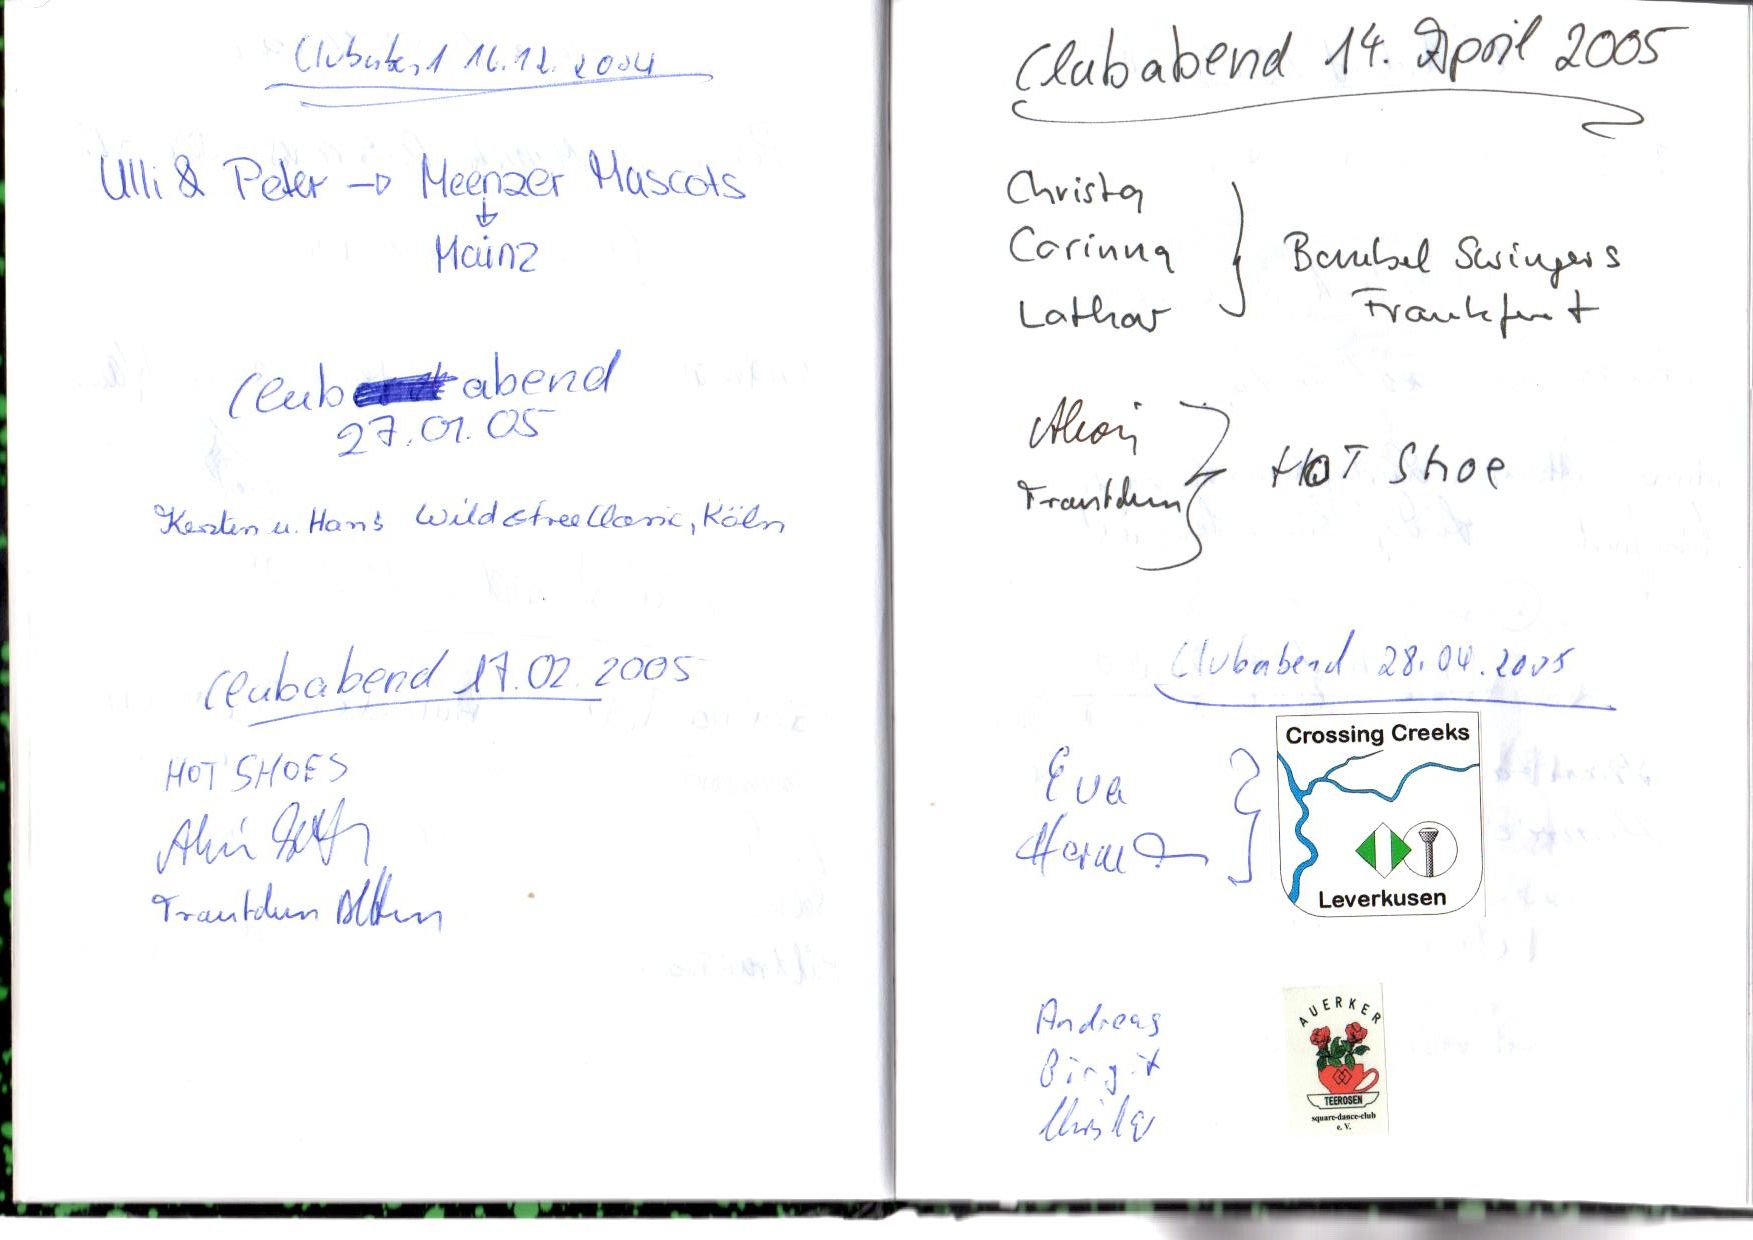 Clubabend 16.12.2004
Ulli & Peter → Meenzer Mascots
↓
Mainz
Clubabend
27.01.05
Kersten u. Hans Wild Street Classic, Köln
Clubabend 17.02.2005
HOT SHOES
Alois
Trautchen
Clubabend 14. April 2005
Christa
Corinna
Lothar
Bembel Swingers
Frankfurt
Alois
Trautchen
HOT Shoe
Clubabend 28.04.2005
Eva
Crossing Creeks
Leverkusen
Andreas
Birgit
Christa
AUERKER
TEEROSEN
square-dance-club
e.V.